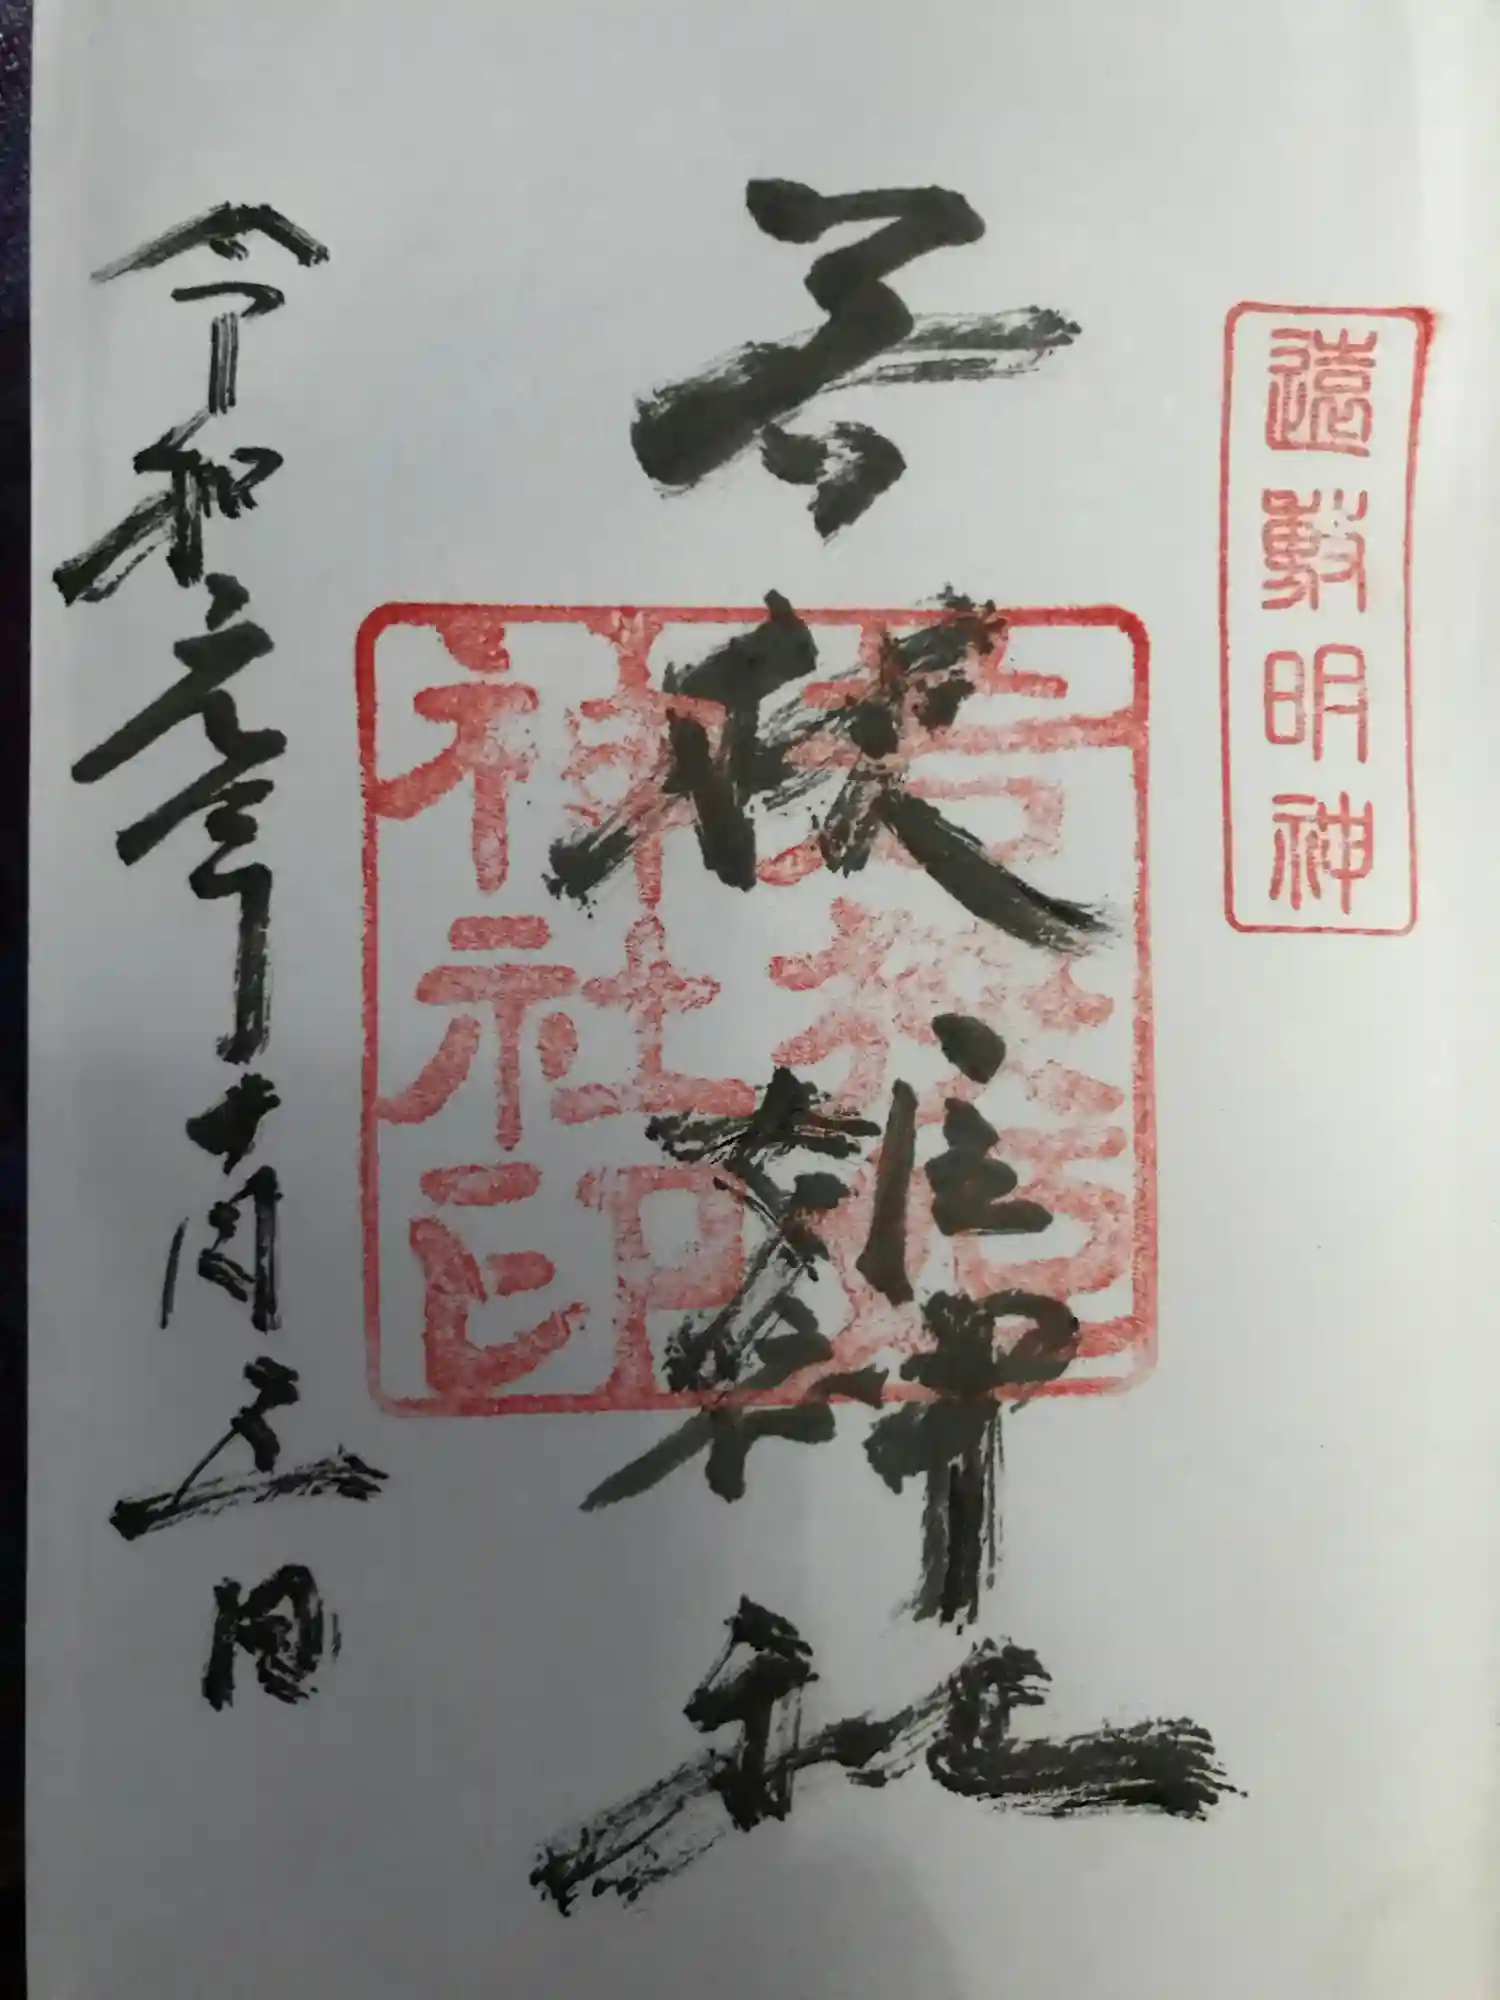 遠敷明神
若狭姫神社
若狭姫
神社印
令和元年十月五日